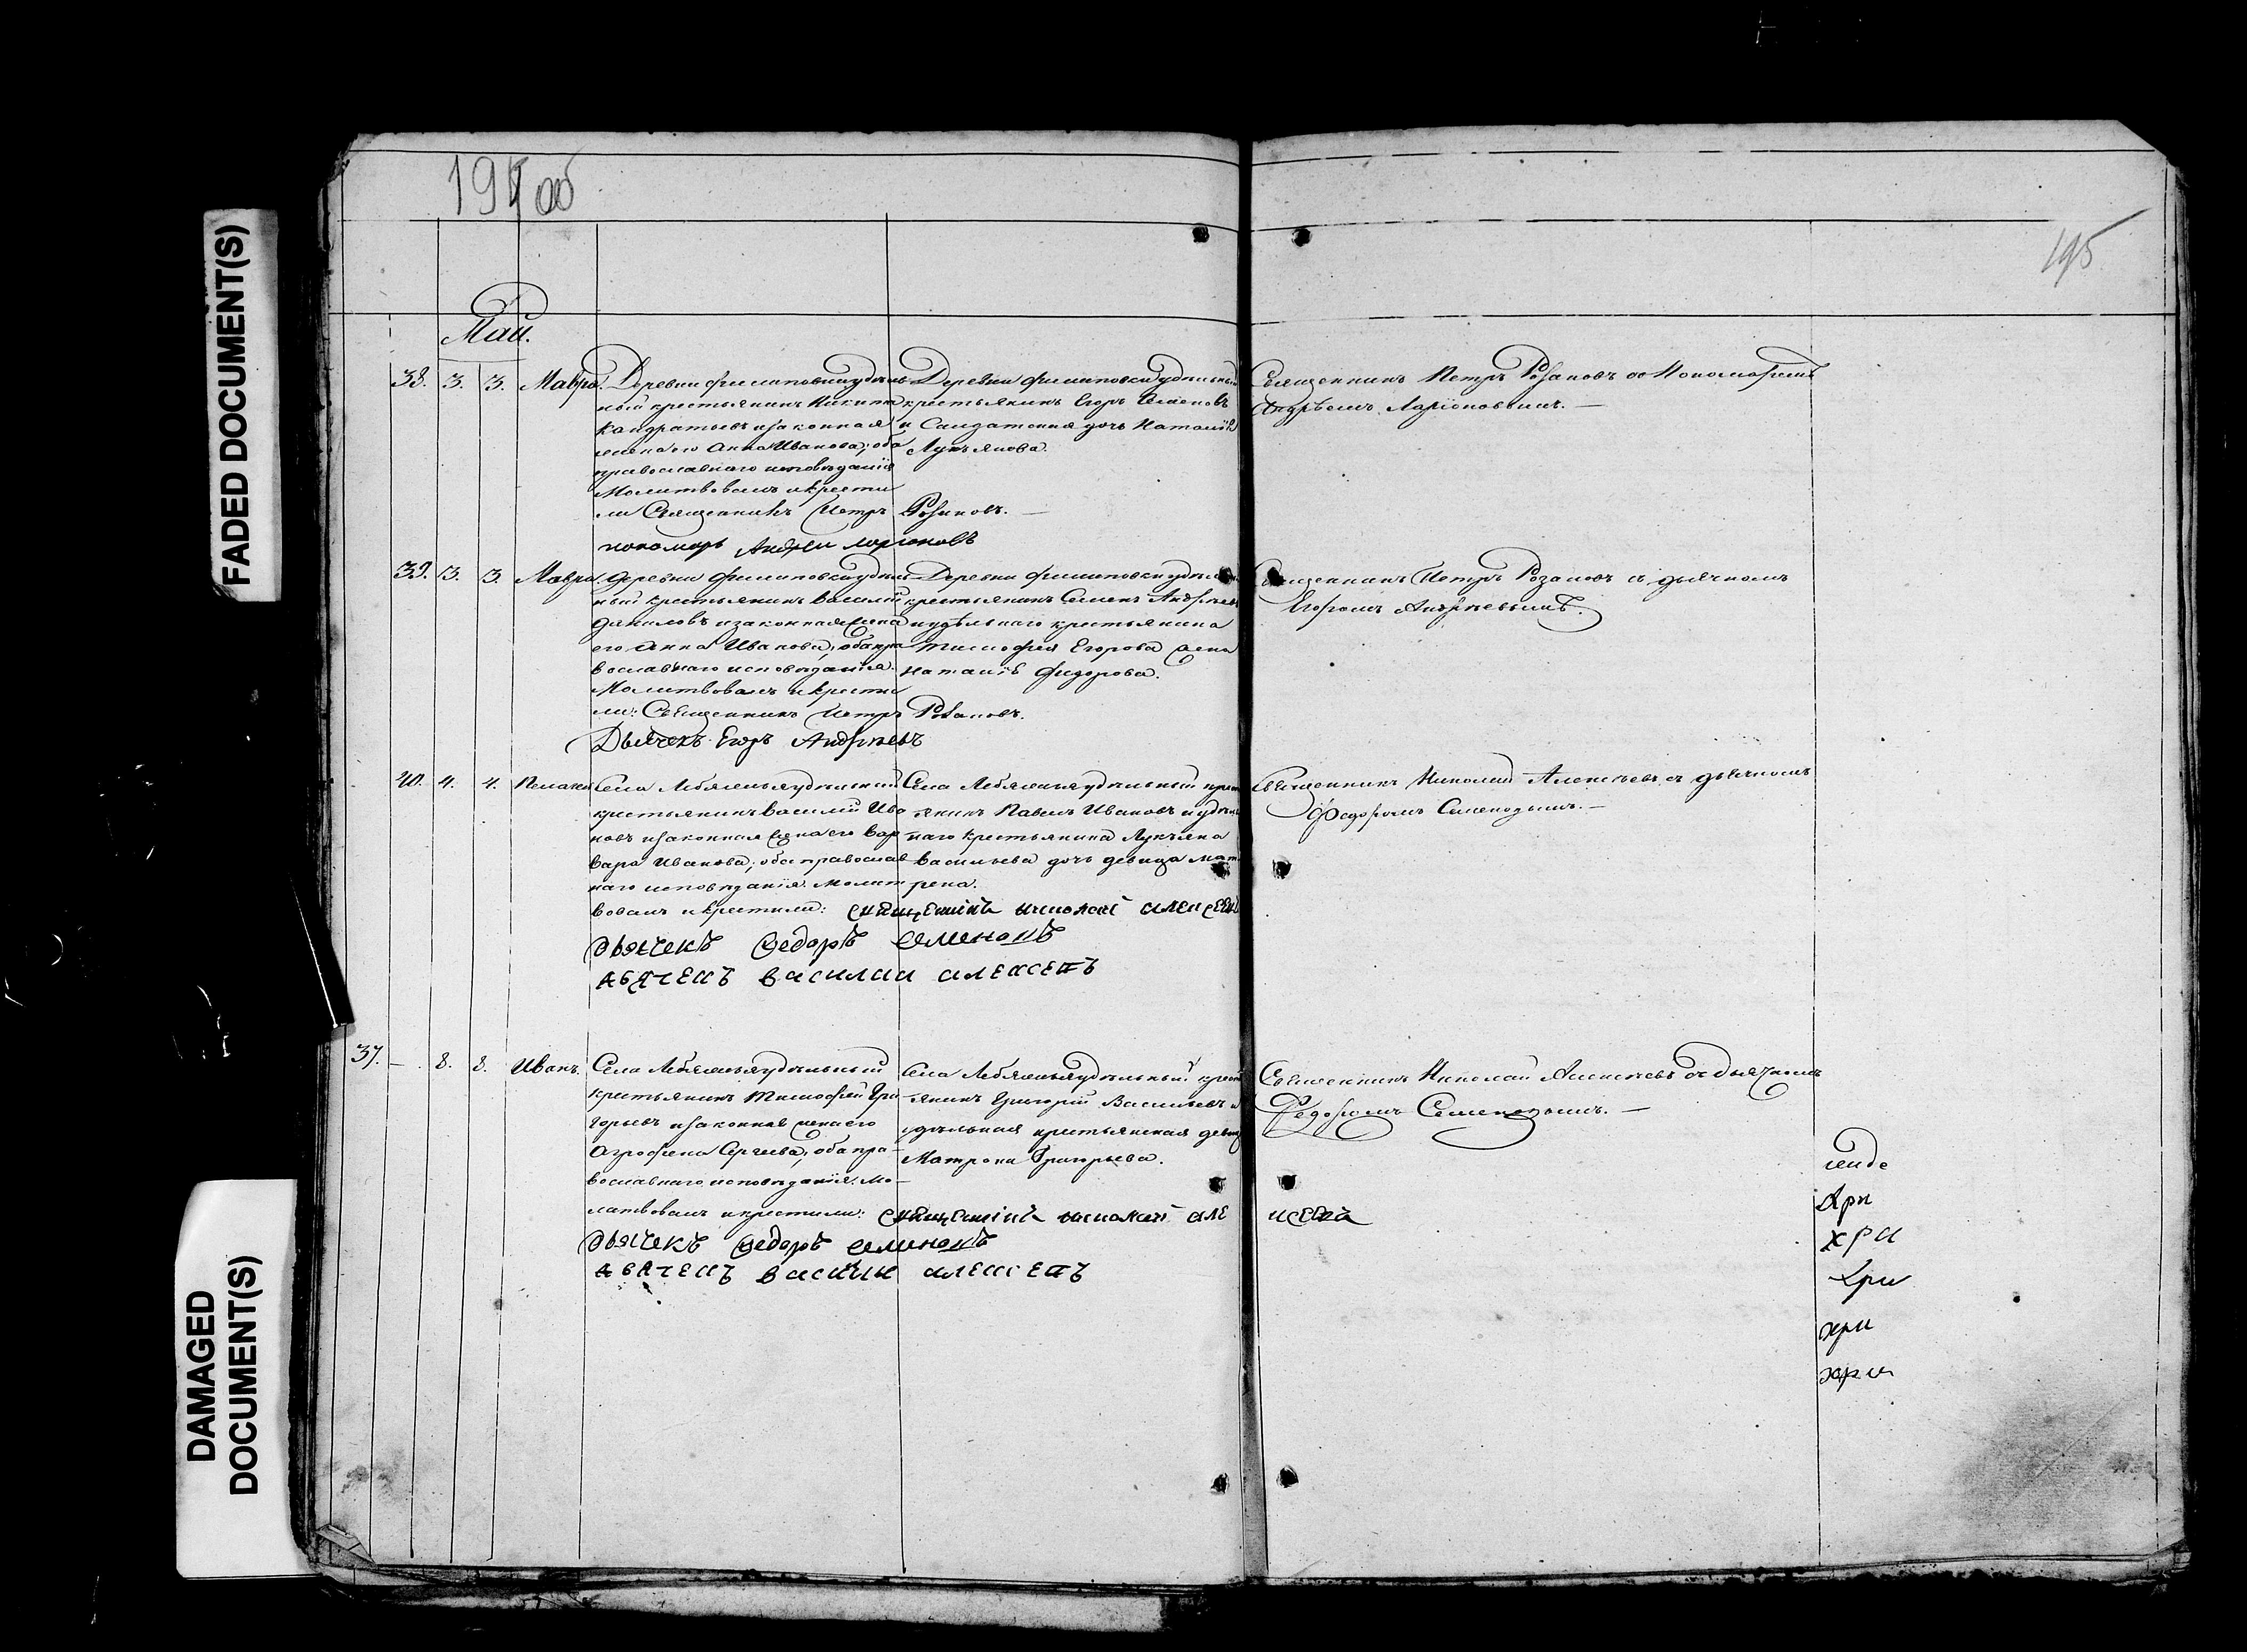 FADED DOCUMENT(S)
DAMAGED
DOCUMENT(S)
194 об
195
Маій.
38. 3. 3. Мавра.
Деревни Филиповки удѣль-
ный крестьянинъ Никита
Кандратьевъ и законная
жена его Анна Иванова; оба
православнаго исповѣданія
Молитвовалъ и крести
ли Священникъ Петръ Розановъ.
пономарь Андреи Ларионовъ
Деревни Филиповки удѣльный
крестьянинъ Егоръ Семеновъ
и Салдатская дочь Наталія
Лукъянова.
Священникъ Петръ Розановъ со Пономаремъ
Андрѣемъ Ларіоновымъ.
39. 3. 3. Мавра.
Деревни Филиповки удѣль
ный крестьянинъ Василий
Даниловъ и законная жена
его Анна Иванова; оба пра
вославнаго исповѣданія.
Молитвовалъ и крести
ли: Священникъ Петръ Розановъ.
Дьячекъ Егоръ Андрѣевъ
Деревни Филиповки удѣльн
крестьянинъ Семенъ Андрѣевъ
и удѣльнаго крестьянина
Тимофея Егорова жена
Наталія Фидорова.
Священникъ Петръ Розановъ съ дьячкомъ
Егоромъ Андрѣевымъ.
40. 4. 4. Пелагея
Села Лебяжья удѣльный
крестьянинъ Василий Ива
новъ и законная жена его Вар
вара Иванова; оба православ
наго исповѣданія. Молит
вовалъ и крестили: священникъ николай алексеевъ
дьячекъ Федоръ семеновъ
дьячекъ василии алексеевъ
Села Лебяжья удѣльный крест
янинъ Павелъ Ивановъ и удѣль
наго крестьянина Лукъяна
Васильева дочь девица Мат
рена.
Священникъ Николай Алексѣевъ съ дьячкомъ
Федоромъ Семеновымъ.
37. — 8. 8. Иванъ.
Села Лебяжья удѣльный
крестьянинъ Тимофей Гри
горьевъ и законная жена его
Агрофена Сергеева; оба пра-
вославнаго исповѣданія. Мо-
литвовалъ и крестили: священникъ николай але ксеевъ
дьячекъ Федоръ семеновъ
дьячекъ василии алексеевъ
Села Лебяжья удѣльный крест
янинъ Григорій Васильевъ и
удѣльная крестьянская девица
Матрона Григорьева.
Священникъ Николай Алексѣевъ съ дьячкомъ
Федоромъ Семеновымъ.
хри
хри
хри
хри
хри